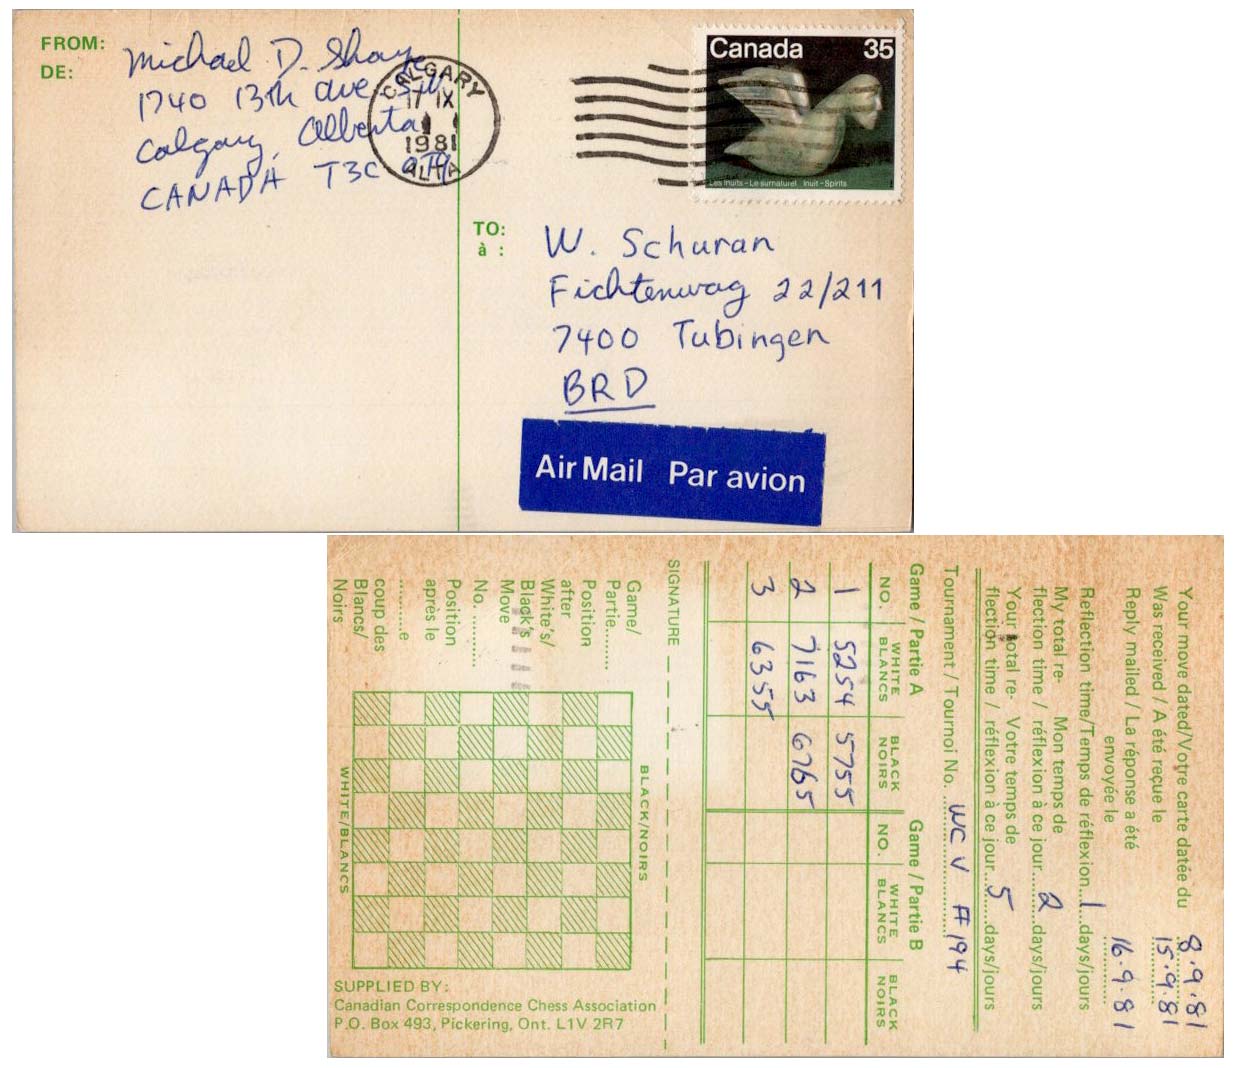 FROM:
DE:
Michael D. Shaye
1740 13th ave SW
Calgary, Alberta
CANADA T3C
CALGARY
17 IX
1981
ALTA
Canada 35
Les Inuits - Le surnaturel Inuit - Spirits
TO:
à :
W. Schuran
Fichtenwag 22/211
7400 Tubingen
BRD
Air Mail Par avion
Your move dated/Votre carte datée du 8.9.81
Was received / A été reçue le 15.9.81
Reply mailed / La réponse a été
envoyée le 16.9.81
Reflection time/Temps de réflexion...1...days/jours
My total re- Mon temps de
flection time / réflexion à ce jour...2...days/jours
Your total re- Votre temps de
flection time / réflexion à ce jour...5...days/jours
Tournament / Tournoi No. WC V # 194
Game / Partie A Game / Partie B
NO. WHITE BLANCS BLACK NOIRS NO. WHITE BLANCS BLACK NOIRS
1 5254 5755
2 7163 6765
3 6355
SIGNATURE
Game/
Partie.......
Position
after
White's/
Black's
Move
No. .........
Position
après le
.........e
coup des
Blancs/
Noirs
BLACK/NOIRS
WHITE/BLANCS
SUPPLIED BY:
Canadian Correspondence Chess Association
P.O. Box 493, Pickering, Ont. L1V 2R7